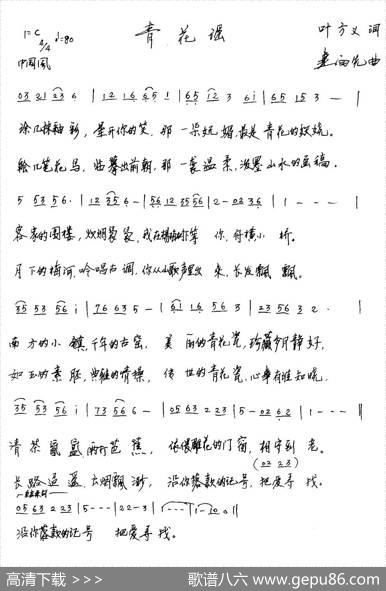 1=C 4/4 ♩=80
青花谣
叶方义 词
中国风
曲
03 21 23 6 | 12 16 65 1 | 65 12 3 6i | 65 15 3 — |
涂几抹釉彩，晕开你的笑，那一朵妩媚最是青花的妖娆。
绘几笔花鸟，临摹出前朝，那一袭温柔，泼墨山水的画稿。
5 53 56· | 12 35 6 — | 56 12 35 56 | 2 — 02 36 | 1 - - - |
客家的围楼，炊烟袅袅，我在 你 等 你，舟横小桥。
月下的梅河，吟唱古调，你从山歌声里 来，长发飘飘。
35 53 56 i | 76 63 5 — | 6i 61 65 3 | 23 56 3 2· |
南方的小镇，千年的古窑，美丽的青花瓷，珍藏岁月静好，
如玉的素胚，典雅的情操，传世的青花瓷，心事有谁知晓。
35 53 56 i | 73 56 6 — | 05 63 2 23 | 5 — 02 62 | 1 - - - ‖
清茶氤氲 雨打芭蕉，依偎雕花的门窗，相守到老。
(02 23)
长路逍遥 古烟飘渺，沿你落款的记号，把爱寻找。
05 63 2 23 | 5 - - - | 22 — 3 | 1 - - - | 1 — 10 0 ‖
沿你落款的记号 把爱寻找。
高清下载 >>>
歌谱八六 www.gepu86.com